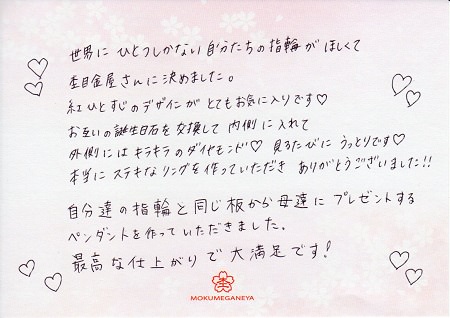 世界に ひとつしかない 自分たちの指輪が ほしくて
杢目金屋さんに決めました。
紅ひとすじのデザインが とてもお気に入りです♡
お互いの誕生日石を交換して 内側に入れて
外側には キラキラのダイヤモンド♡ 見るたびに うっとりです♡
本当に ステキなリングを作っていただき ありがとうございました!!
自分達の指輪と同じ板から母達に プレゼントする
ペンダントを作っていただきました。
最高な仕上がりで大満足です!
杢
MOKUMEGANEYA